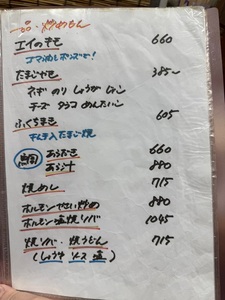 一品・炒めもん
エイのきも 660
ゴマ油 ポン酢で!
たまごやき 385〜
ネギ のり しょうが じゃこ
チーズ タラコ めんたいこ
ふくちまき 605
すじ入たまご焼
鯛 あらだき 660
あら汁 880
焼めし 715
ホルモンやさい炒め 880
ホルモン塩焼ソバ 1045
焼ソバ・焼うどん 715
(しょうゆ ソース 塩)